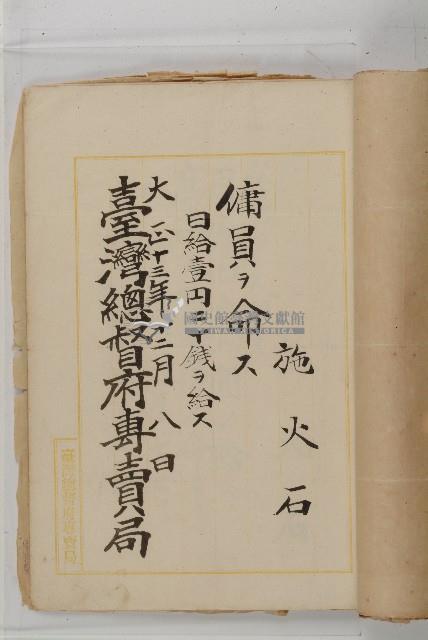 施火石
傭員ヲ命ス
日給壹円十銭ヲ給ス
大正十三年二月八日
臺灣總督府專賣局
臺灣總督府專賣局
國史館臺灣文獻館